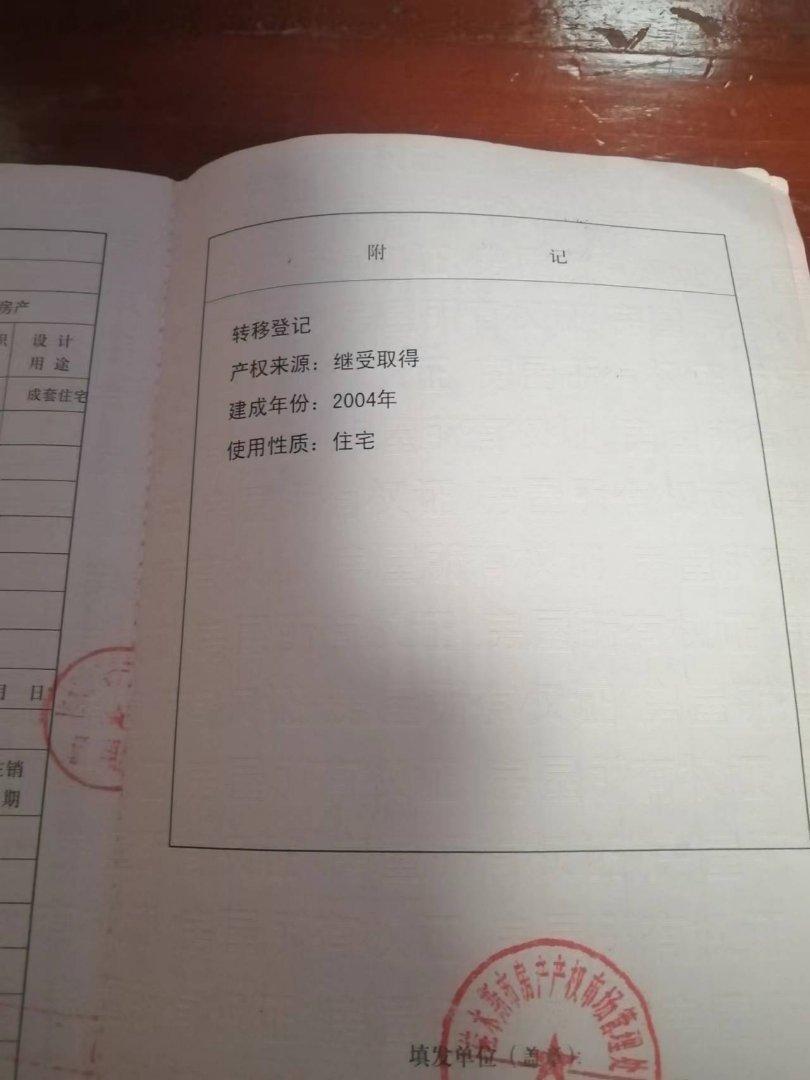 房产
设计
用途
成套住宅
月 日
期
附 记
转移登记
产权来源：继受取得
建成年份：2004年
使用性质：住宅
木斯市房产产权市场管理处
填发单位（盖章）